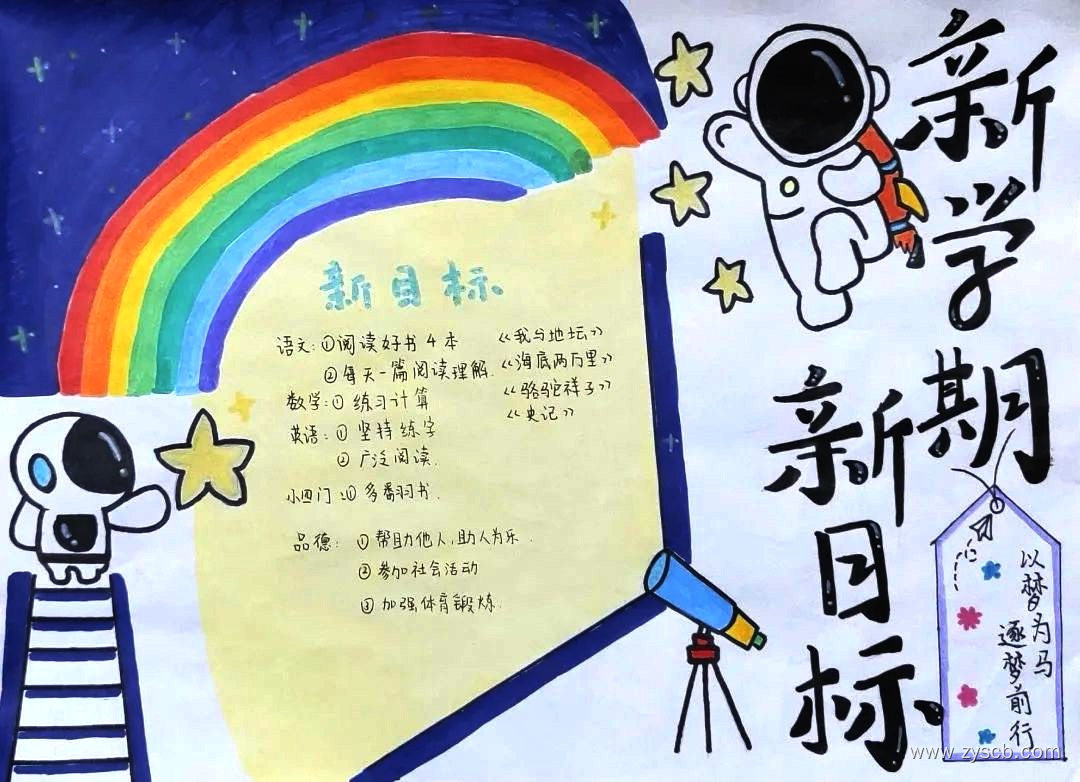 新学期
新目标
新目标
语文:①阅读好书4本 《我与地坛》
②每天一篇阅读理解. 《海底两万里》
数学:① 练习计算 《骆驼祥子》
《史记》
英语:① 坚持练字
② 广泛阅读.
小四门:① 多翻羽书.
品德: ① 帮助他人,助人为乐.
② 参加社会活动
③ 加强体育锻炼.
以梦为马
逐梦前行
www.zyscb.com